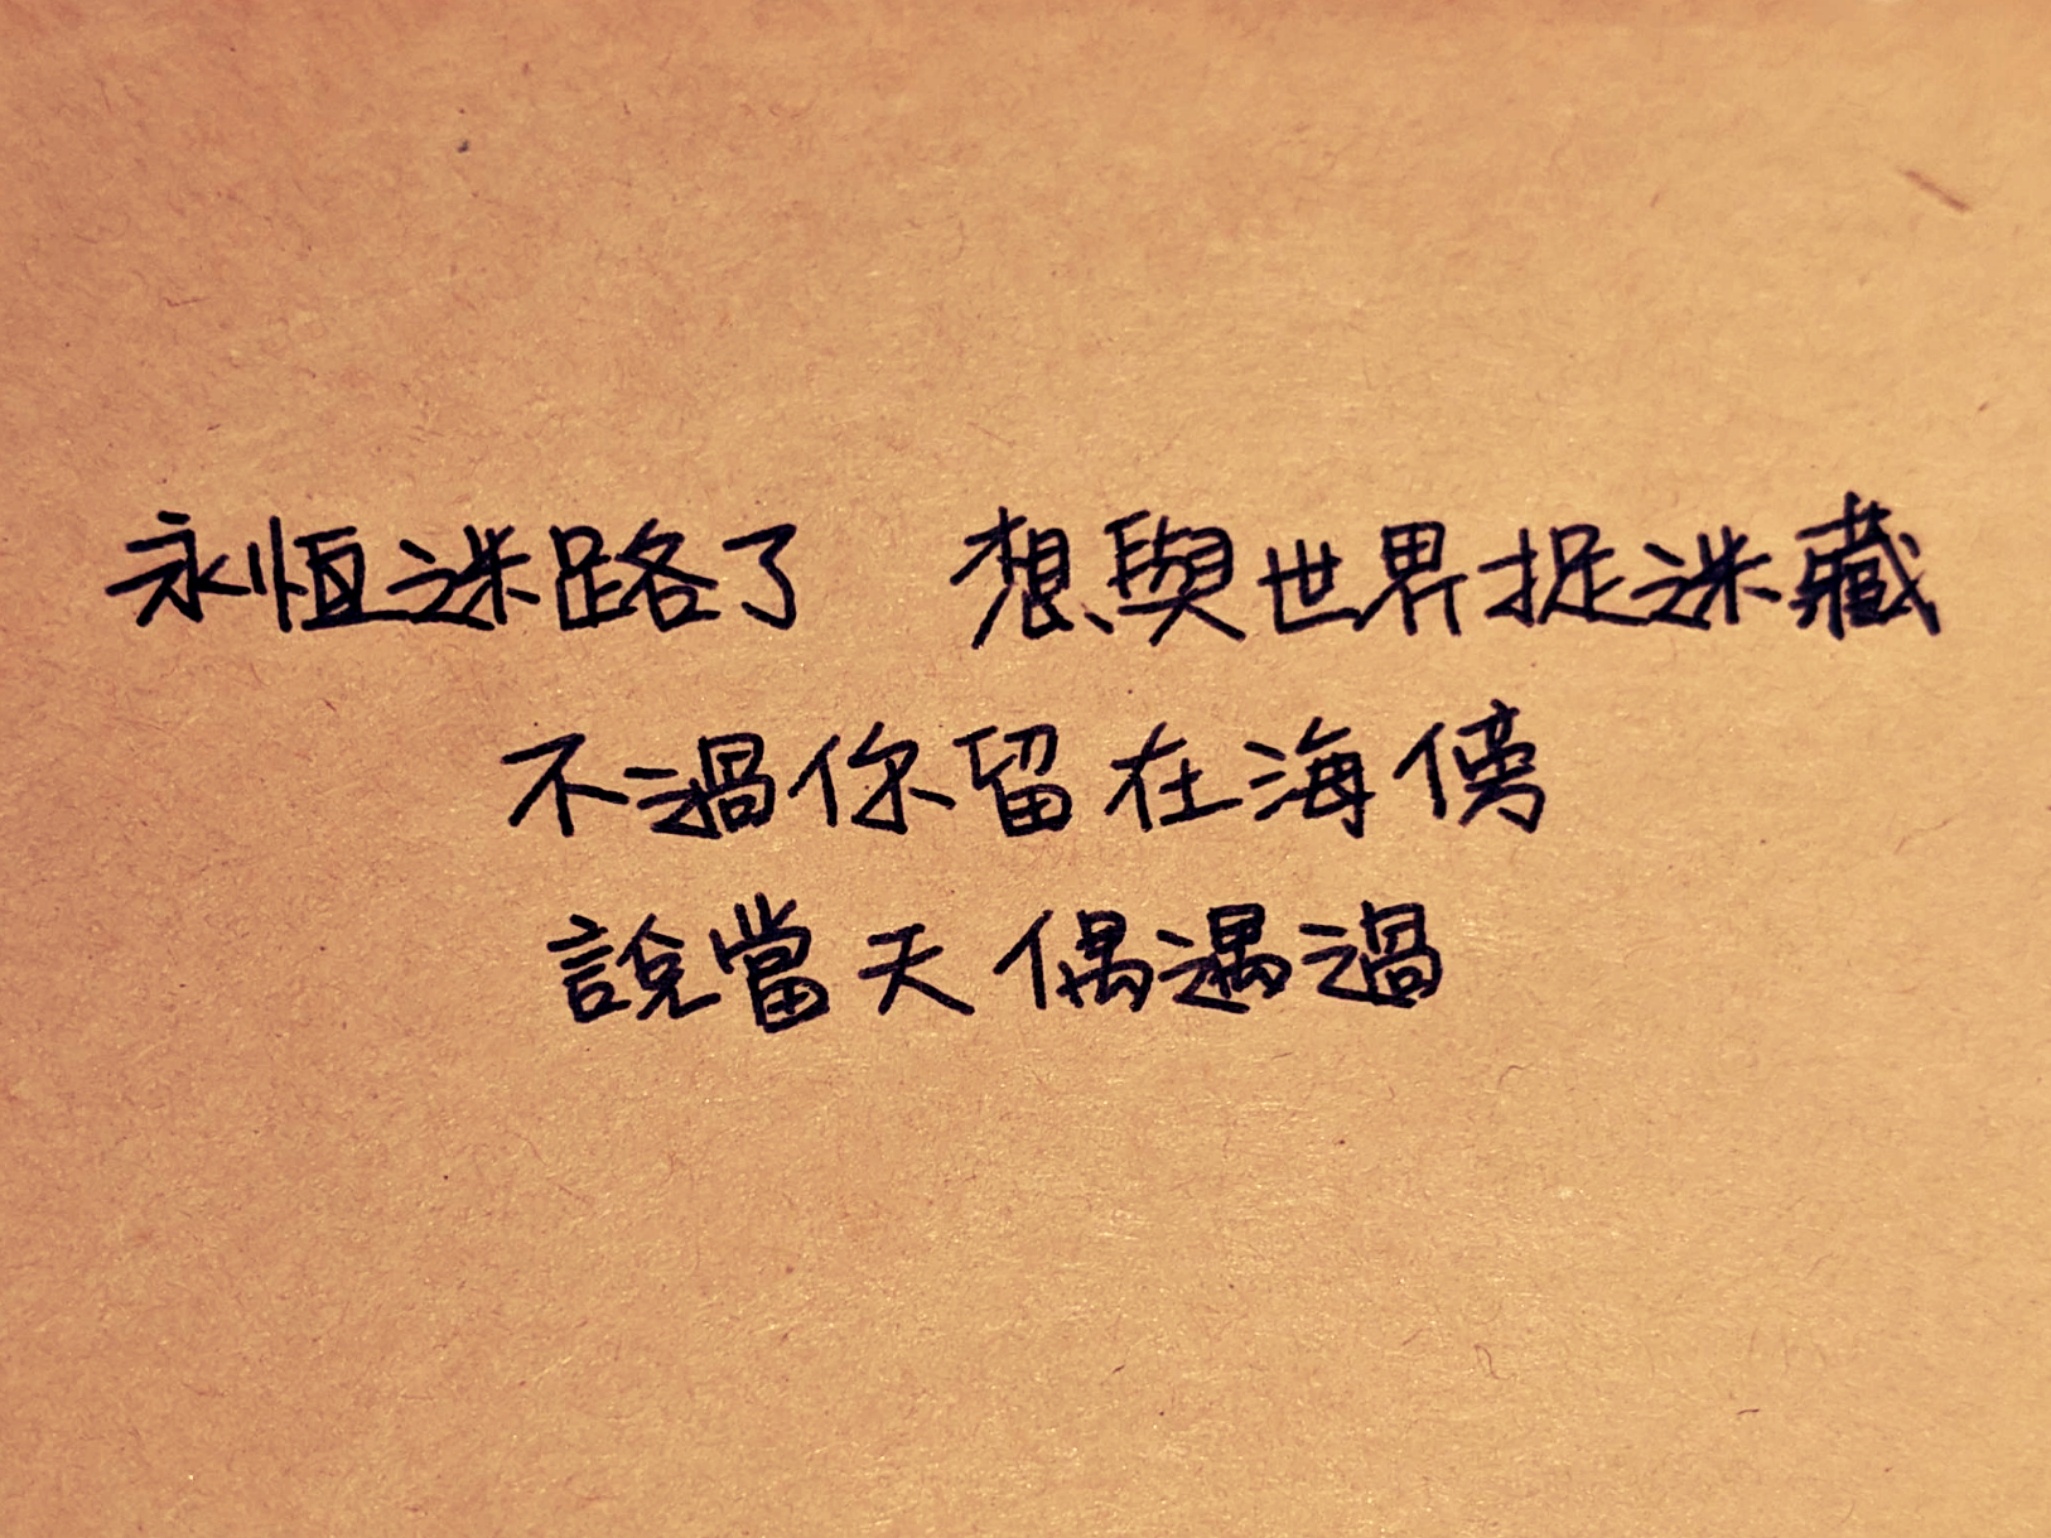 永恆迷路了 想與世界捉迷藏
不過你留在海傍
說當天偶遇過